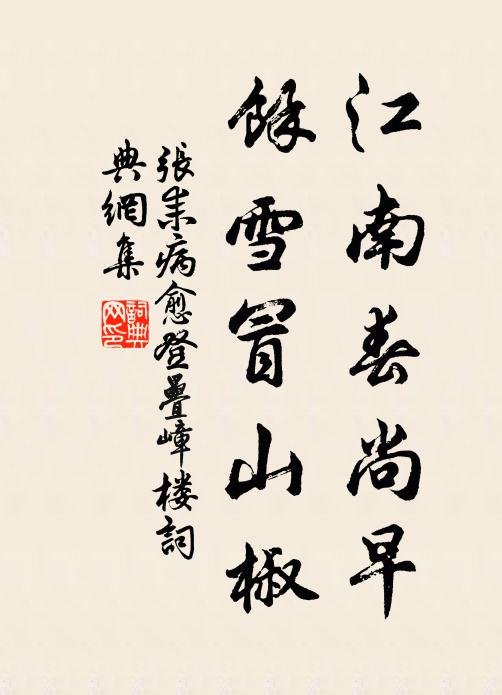 江南春尚早
餘雪冒山椒
張耒病愈登疊嶂楼詞
典網集
詞典网印